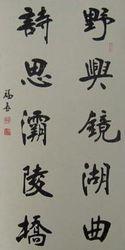 野興鏡湖曲
詩思灞陵橋